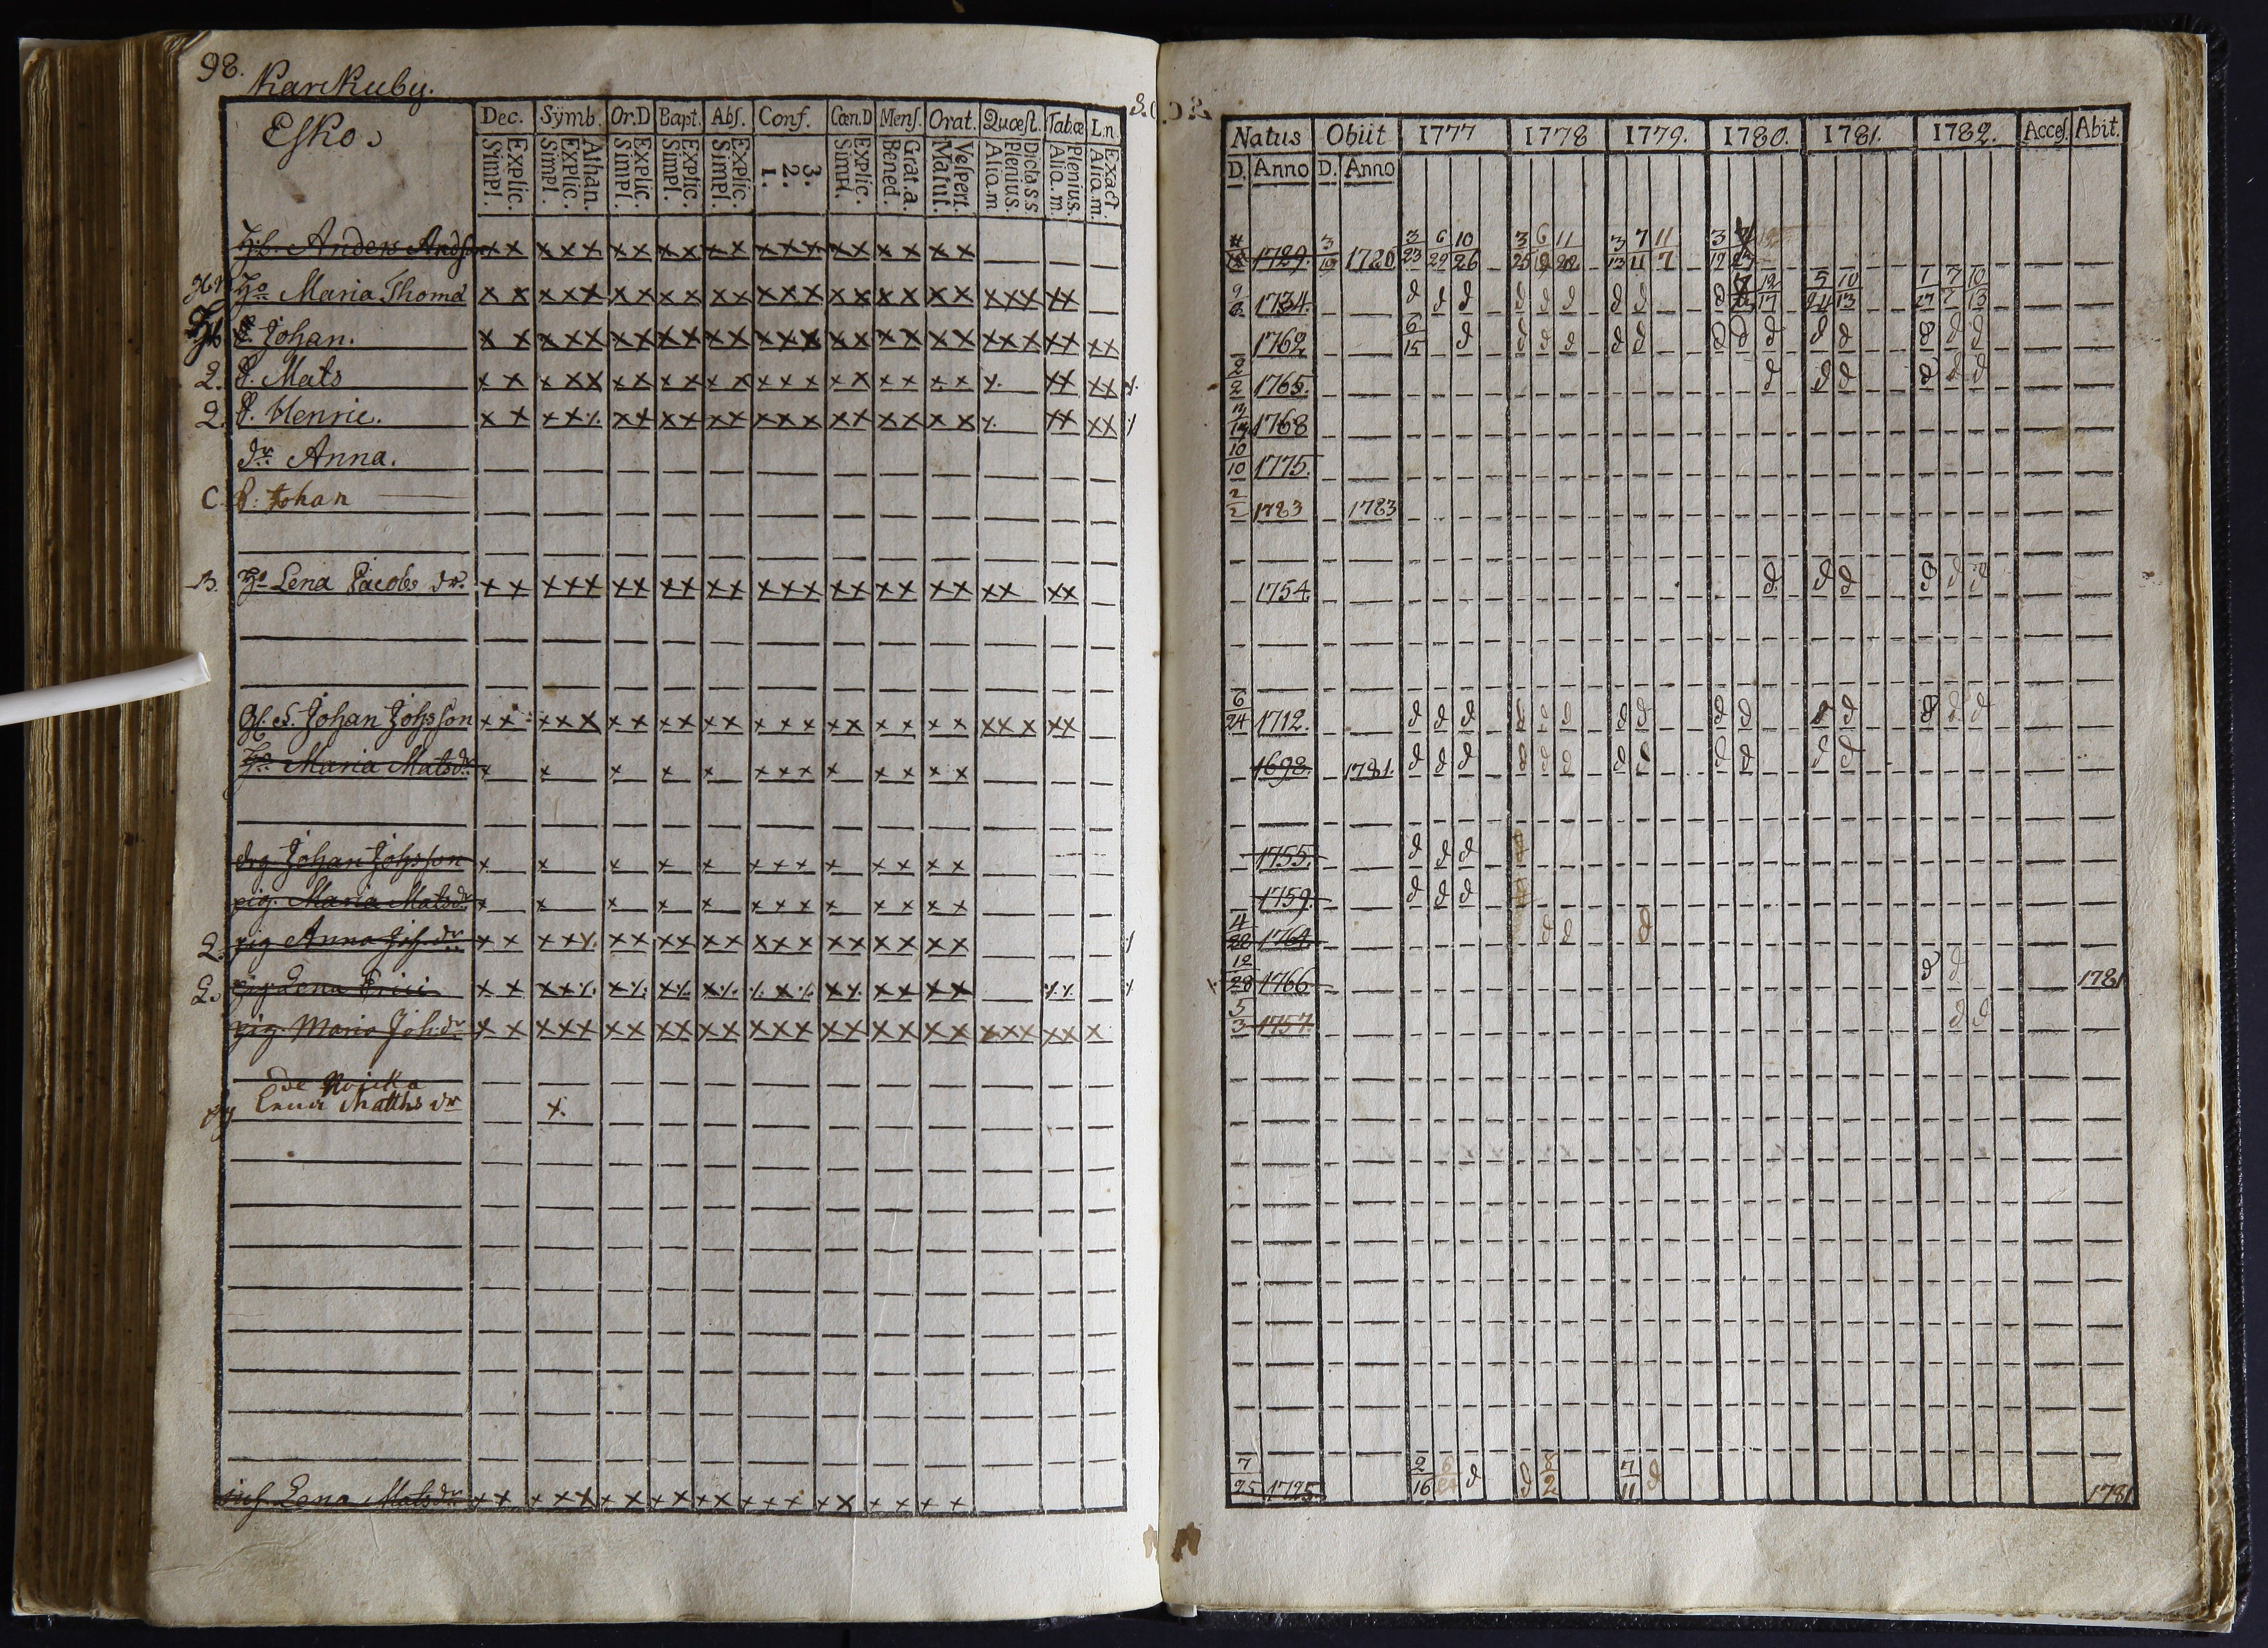 98.
Karkkuby.
Esko.
Dec. Sÿmb. Or.D Bapt. Abſ. Conf. Cœn.D Menſ. Orat. Quæſt. Tabæ I.n.
Explic. Simpl. Athan. Explic. Simpl. Explic. Simpl. Explic. Simpl. Explic. Simpl. 3. 2. 1. Explic. Simpl. Grat.a. Bened. Veſpert. Matut. Dicta.s.s plenius. Alia.m Plenius. Alia.m. Exact. Alia.m.
Natus Obiit 1777 1778 1779. 1780. 1781. 1782. Acceſ. Abit.
D. Anno D. Anno
Anders Andſson x x x x x x x x x x x x x x x x x x x x x 4/18 1729. 3/19 1780 3/23 6/29 10/26 3/25 6/12 11/22 3/13 7/11 11/7 3/12
Ho Maria Thomæ x x x x x x x x x x x x x x x x x x x x x x x x x x 9/8 1734. d d d d d d d d d 12/17 5/24 10/13 1/27 7/7 10/13
S. Johan. x x x x x x x x x x x x x x x x x x x x x x x x x x x x 1762 6/15 d d d d d d d d d d d d d d
2. S. Mats x x x x x x x x x x x x x x x x x x x x x x. x x x x 2/2 1765. d d d d d d
2. S. Henric. x x x x x x x x x x x x x x x x x x x x x x. x x x x 1768
dr Anna. 10/10 1775.
C. S: Johan 2/2 1783 1783
B. Ho Lena Jacobs dr. x x x x x x x x x x x x x x x x x x x x x x x x x 1754 d d d d d d
S. Johan Johsſon x x x x x x x x x x x x x x x x x x x x x x x x x x 6/24 1712. d d d d d d d d d d d d d d d
Ho Maria Matsdr x x x x x x x x x x x x x 1698. 1781. d d d d d d d d d d d d
drg. Johan Johsſon x x x x x x x x x x x x x 1755. d d d d
pig. Maria Matsdr x x x x x x x x x x x x x 1759. d d d
2. pig Anna Joh.dr x x x x x. x x x x x x x x x x x x x x x x 11/22 1764. d d d
2. pig. Lena Erici x x x x x x x x x x x x x x x x x x x x x x x 12/28 1766 d d 1781
pig. Maria Joh:dr x x x x x x x x x x x x x x x x x x x x x x x x x x x 5/3 1757. d d
Lena Matths dr x.
Lena Matsdr x x x x x x x x x x x x x x x x x x x x x 7/25 1725. 2/16 d d 8/2 7/11 d 1781